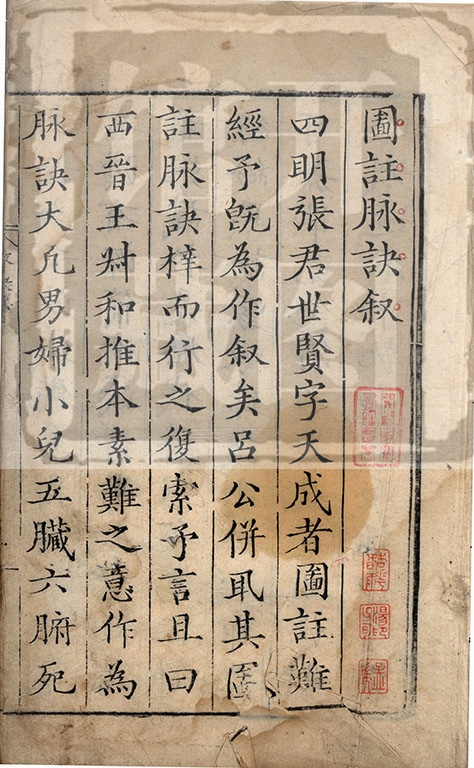 圖註脉訣叙
四明張君世賢字天成者圖註難
經予旣為作叙矣呂公併取其圖
註脉訣梓而行之復索予言且曰
西晉王叔和推本素難之意作為
脉訣大凢男婦小兒五臟六腑死